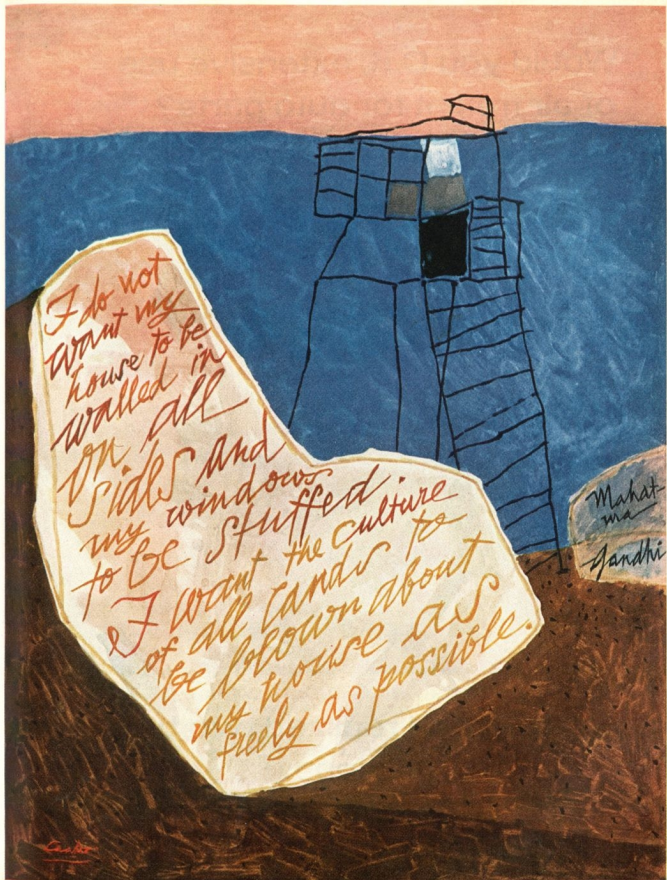 I do not
want my
house to be
walled in
on all
sides and
my windows
to be stuffed.
I want the culture
of all lands to
be blown about
my house as
freely as possible.
Mahat-
ma
Gandhi